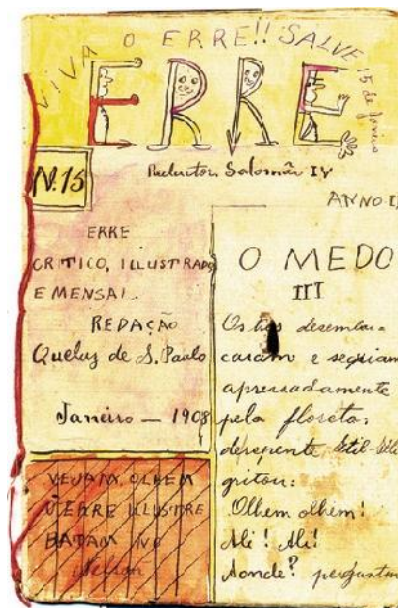 VIVA O ERRE!! SALVE
15 de Janeiro
ERRE
N. 15
Redutor Salomão IV
ANNO I
ERRE
CRITICO, ILLUSTRADO
E MENSAL
REDAÇÃO
Queluz de S. Paulo
Janeiro — 1908
VEJAM OLHEM
O ERRE ILLUSTRE
BATAM NO
Nelson
O MEDO
III
Os tres desembar-
caram e seguiam
apressadamente
pela floresta,
derepente
gritou:
Olhem olhem!
Ali! Ali!
Aonde? perguntam